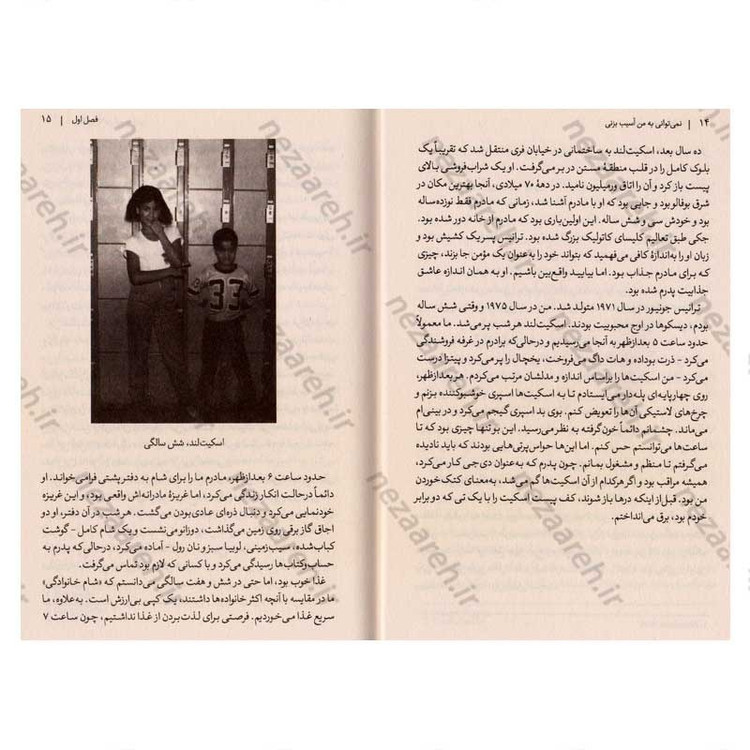 ۱۴ | نمی‌توانی به من آسیب بزنی
ده سال بعد، اسکیت‌لند به ساختمانی در خیابان فری منتقل شد که تقریباً یک
بلوک کامل را در قلب منطقهٔ مستن در بر می‌گرفت. او یک شراب‌فروشی بالای
پیست باز کرد و آن را اتاق ورمیلیون نامید. در دههٔ ۷۰ میلادی، آنجا بهترین مکان در
شرق بوفالو بود و جایی بود که او با مادرم آشنا شد، زمانی که مادرم فقط نوزده‌ساله
بود و خودش سی و شش ساله. این اولین‌باری بود که مادرم از خانه دور شده بود.
جکی طبق تعالیم کلیسای کاتولیک بزرگ شده بود. ترانیس پسر یک کشیش بود و
زبان او را به‌اندازهٔ کافی می‌فهمید که بتواند خود را به‌عنوان یک مؤمن جا بزند، چیزی
که برای مادرم جذاب بود. اما بیایید واقع‌بین باشیم. او به همان اندازه عاشق
جذابیت پدرم شده بود.
ترانیس جونیور در سال ۱۹۷۱ متولد شد. من در سال ۱۹۷۵ و وقتی شش ساله
بودم، دیسکوها در اوج محبوبیت بودند. اسکیت‌لند هر شب پر می‌شد. ما معمولاً
حدود ساعت ۵ بعدازظهر به آنجا می‌رسیدیم و درحالی‌که برادرم در غرفه فروشندگی
می‌کرد - ذرت بوداده و هات داگ می‌فروخت، یخچال را پر می‌کرد و پیتزا درست
می‌کرد - من اسکیت‌ها را براساس اندازه و مدلشان مرتب می‌کردم. هر بعدازظهر،
روی چهارپایه‌ای پله‌دار می‌ایستادم تا به اسکیت‌ها اسپری خوشبوکننده بزنم و
چرخ‌های لاستیکی آن‌ها را تعویض کنم. بوی بد اسپری گیجم می‌کرد و در بینی‌ام
می‌ماند. چشمانم دائماً خون‌گرفته به نظر می‌رسید. این بو تنها چیزی بود که تا
ساعت‌ها می‌توانستم حس کنم. اما این‌ها حواس‌پرتی‌هایی بودند که باید نادیده
می‌گرفتم تا منظم و مشغول بمانم. چون پدرم که به‌عنوان دی‌جی کار می‌کرد،
همیشه مراقب بود و اگر هرکدام از آن اسکیت‌ها گم می‌شد، به‌معنای کتک‌خوردن
من بود. قبل از اینکه درها باز شوند، کف پیست اسکیت را با یک تی که دو برابر
خودم بود، برق می‌انداختم.
فصل اول | ۱۵
اسکیت‌لند، شش سالگی
حدود ساعت ۶ بعدازظهر، مادرم ما را برای شام به دفتر پشتی فرامی‌خواند. او
دائماً درحالت انکار زندگی می‌کرد، اما غریزهٔ مادرانه‌اش واقعی بود، و این غریزه
خودنمایی می‌کرد و دنبال ذره‌ای عادی‌بودن می‌گشت. هر شب در آن دفتر، او دو
اجاق گاز برقی روی زمین می‌گذاشت، دوزانو می‌نشست و یک شام کامل - گوشت
کباب‌شده، سیب‌زمینی، لوبیا سبز و نان رول - آماده می‌کرد، درحالی‌که پدرم به
حساب‌وکتاب‌ها رسیدگی می‌کرد و با کسانی که لازم بود تماس می‌گرفت.
غذا خوب بود، اما حتی در شش و هفت سالگی می‌دانستم که «شام خانوادگی»
ما در مقایسه با آنچه اکثر خانواده‌ها داشتند، یک کپی بی‌ارزش است. به‌علاوه، ما
سریع غذا می‌خوردیم. فرصتی برای لذت‌بردن از غذا نداشتیم، چون ساعت ۷
33
33
nezaareh.ir
nezaareh.ir
nezaareh.ir
nezaareh.ir
nezaareh.ir
nezaareh.ir